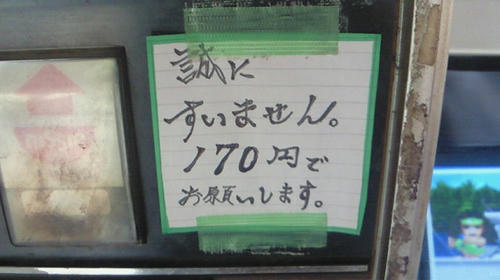 誠に
すいません。
170円で
お願いします。